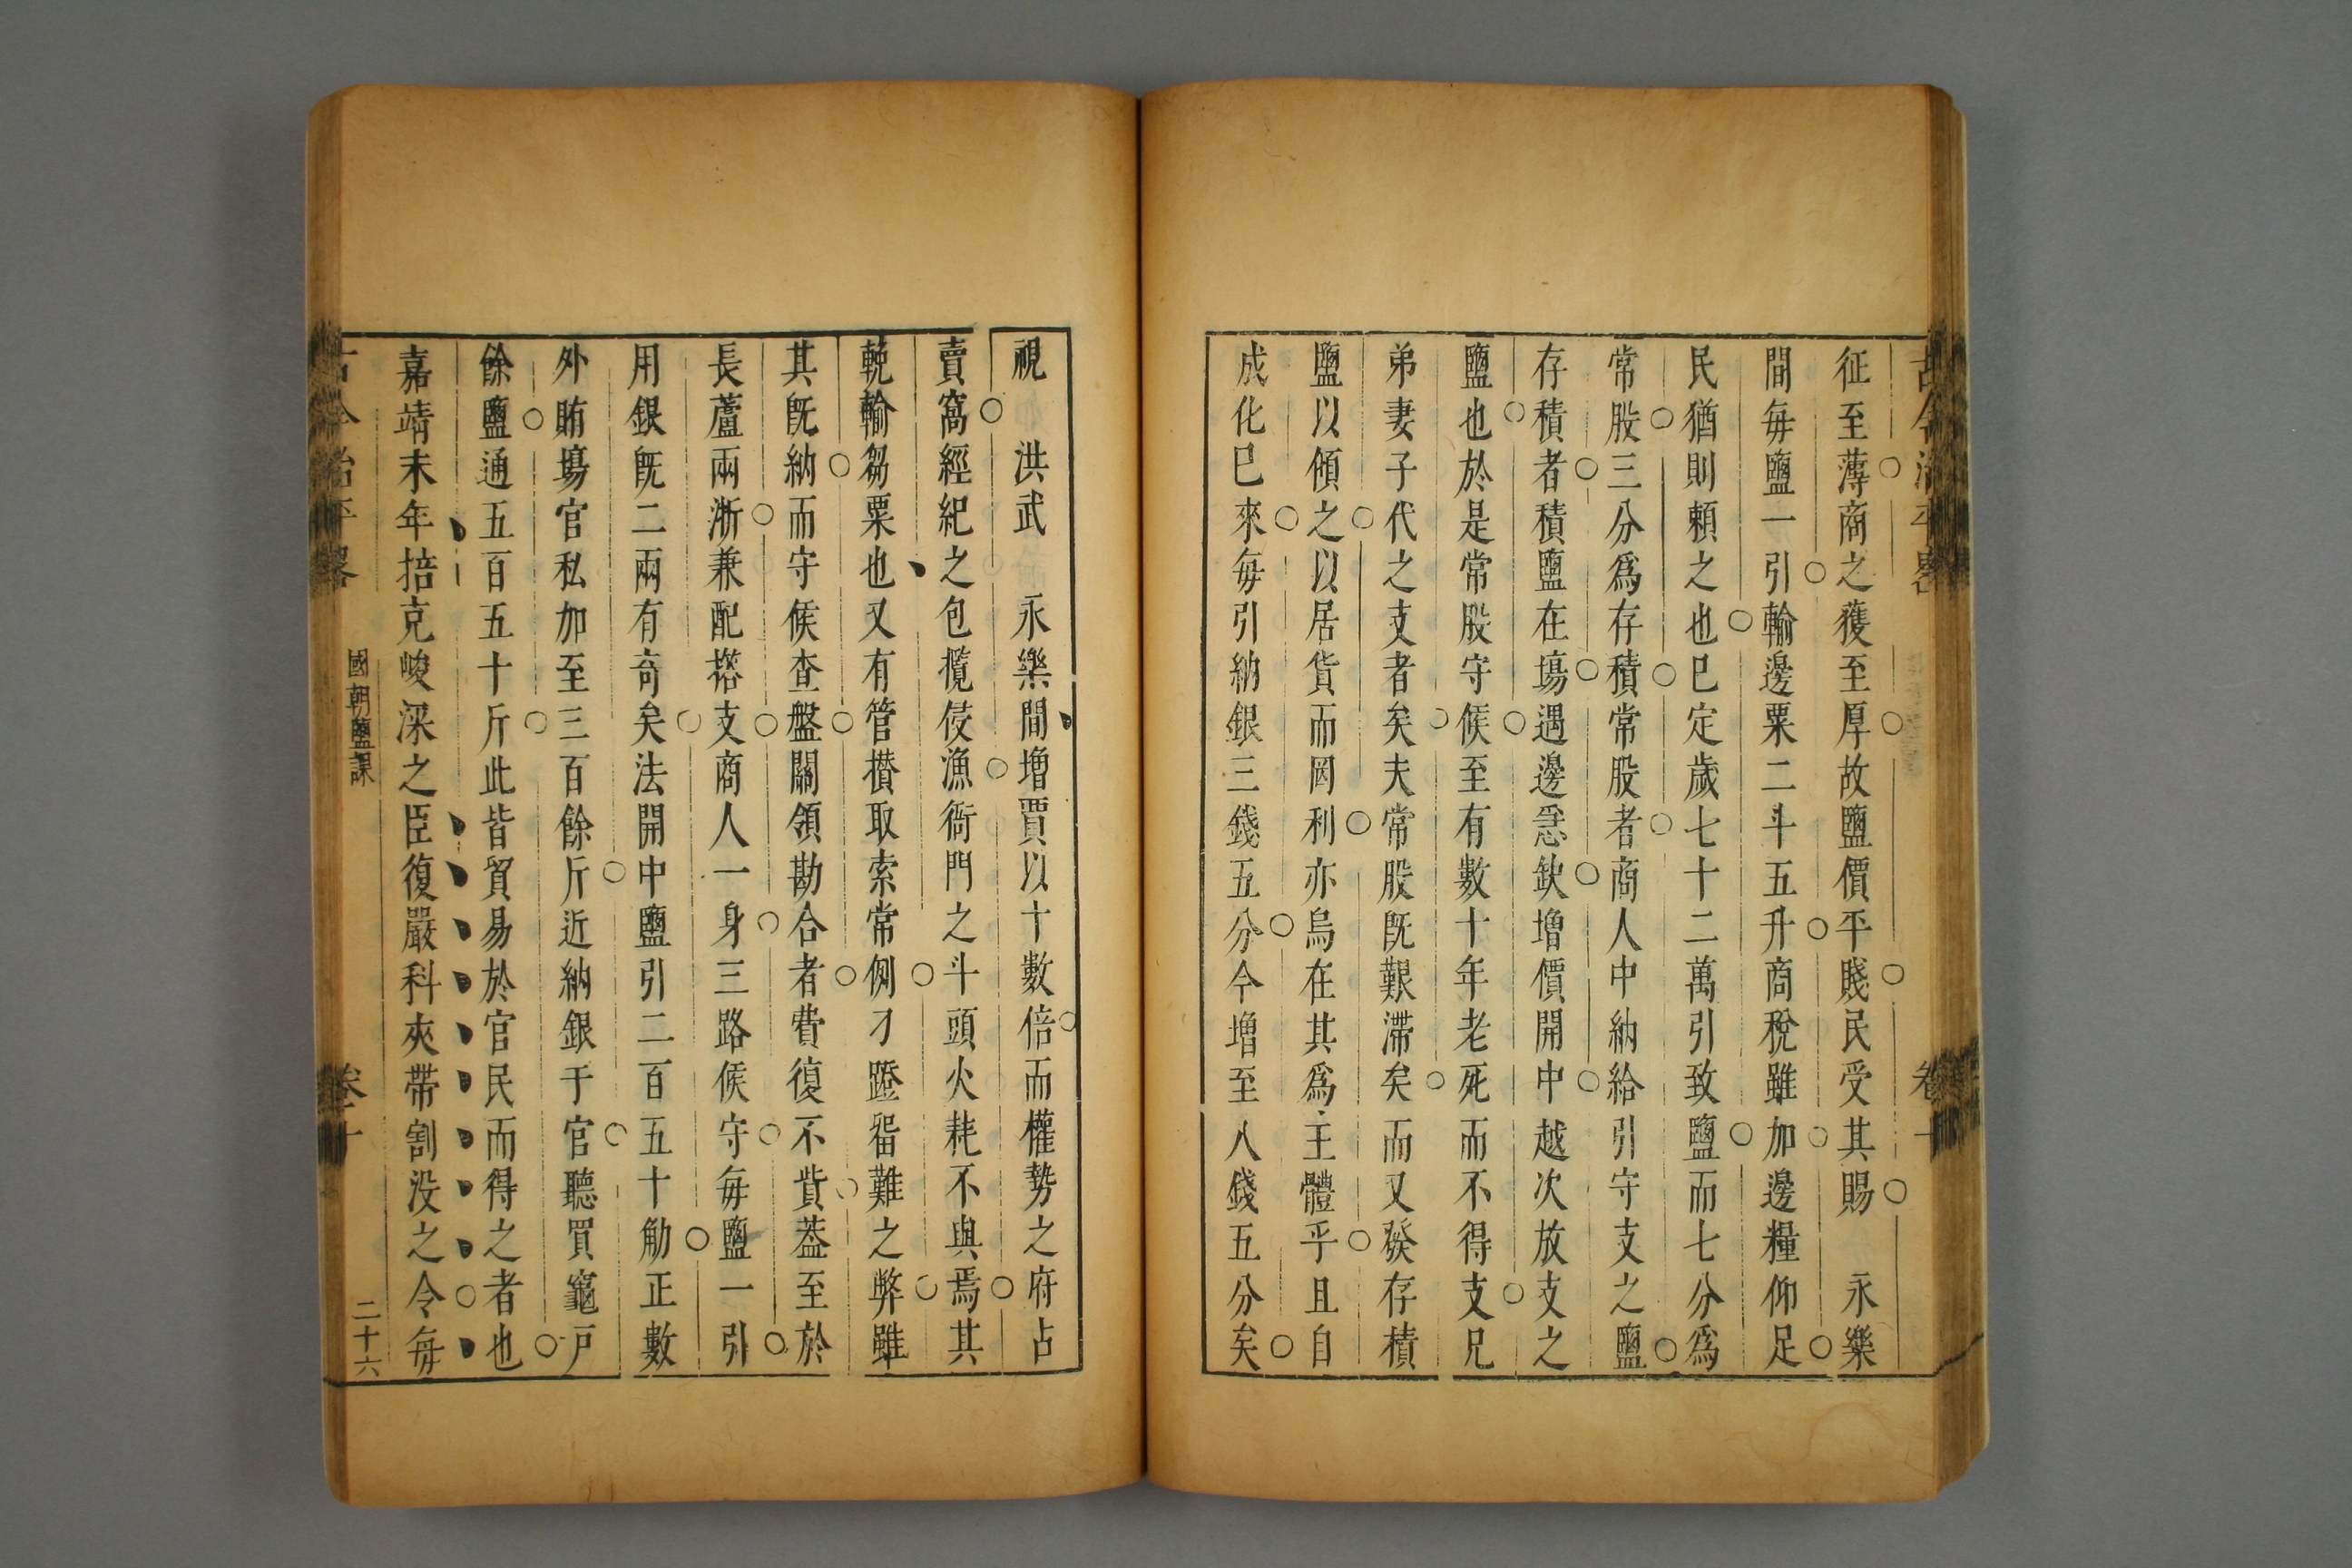 古今治平畧
卷十
征至薄商之獲至厚故鹽價平賤民受其賜 永樂
間每鹽一引輸邊粟二斗五升商稅雖加邊糧仰足
民猶則賴之也已定歲七十二萬引致鹽而七分爲
常股三分爲存積常股者商人中納給引守支之鹽
存積者積鹽在塲遇邊急缺增價開中越次放支之
鹽也於是常股守候至有數十年老死而不得支兄
弟妻子代之支者矣夫常股旣艱滯矣而又發存積
鹽以傾之以居貨而罔利亦烏在其爲主體乎且自
成化已來每引納銀三錢五分今增至八錢五分矣
視 洪武 永樂間增賈以十數倍而權勢之府占
賣窩經紀之包攬侵漁衙門之斗頭火耗不與焉其
輓輸芻粟也又有管攅取索常例刁蹬畱難之弊雖
其旣納而守候查盤關領勘合者費復不貲葢至於
長蘆兩浙兼配搭支商人一身三路候守每鹽一引
用銀旣二兩有奇矣法開中鹽引二百五十觔正數
外賄塲官私加至三百餘斤近納銀于官聽買竈戸
餘鹽通五百五十斤此皆貿易於官民而得之者也
嘉靖末年掊克峻深之臣復嚴科夾帶割没之令每
古今治平畧
國朝鹽課
卷十
二十六